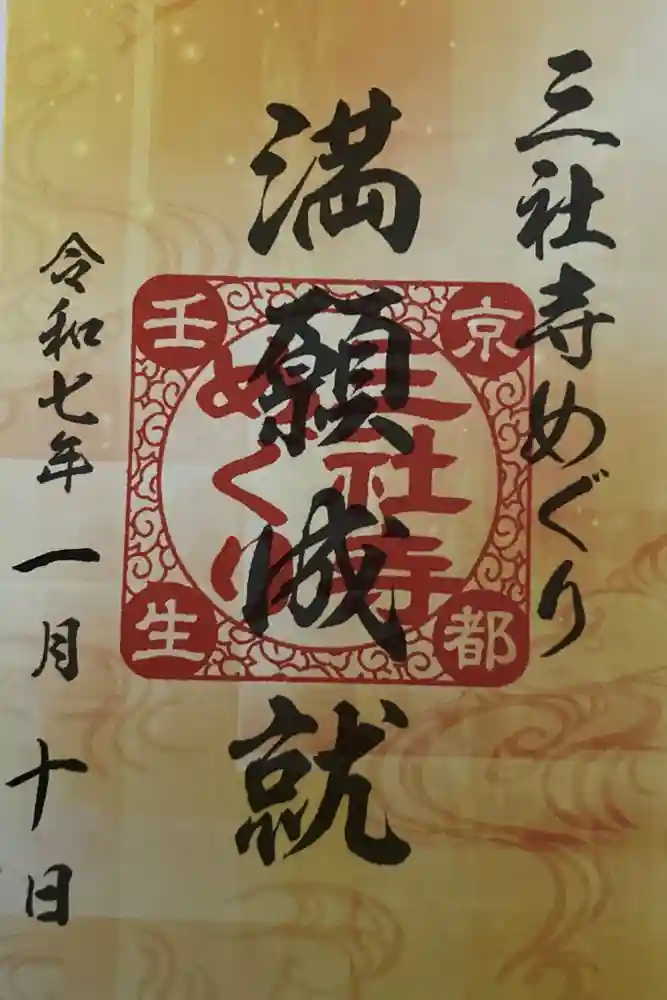 三社寺めぐり
満願成就
京都
壬生
三社寺
めぐり
令和七年一月十日